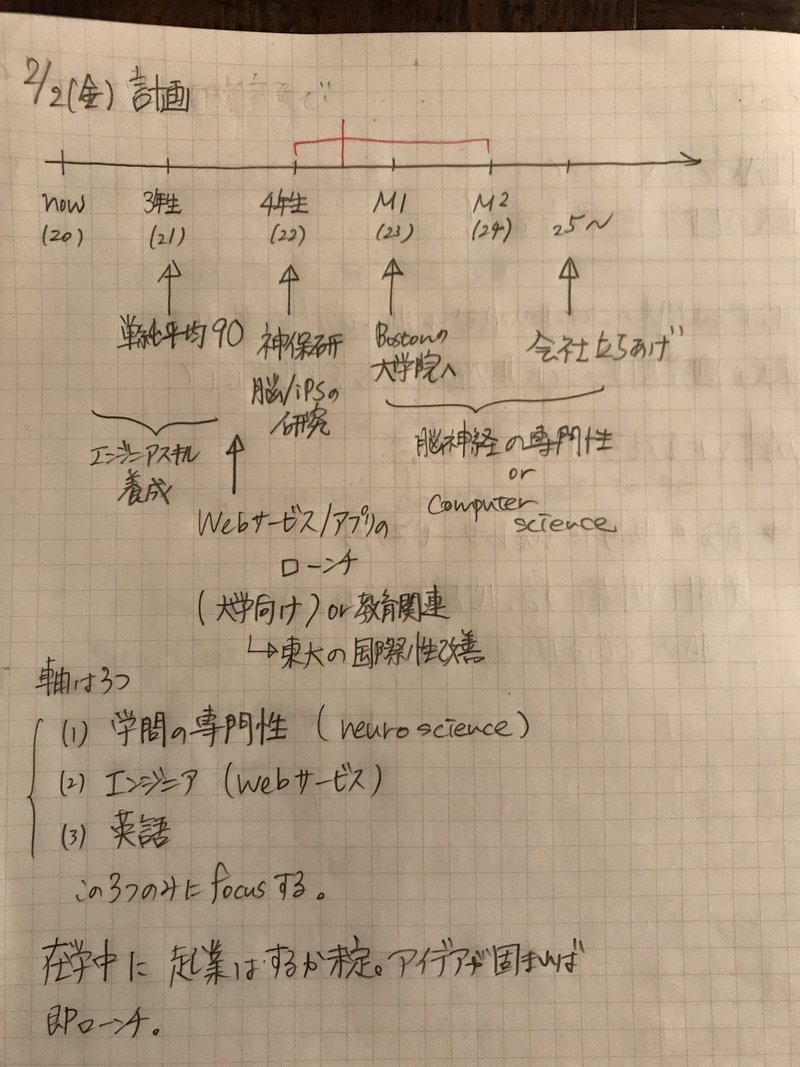 2/2(金) 計画
now 3年生 4年生 M1 M2
(20) (21) (22) (23) (24) 25〜
単純平均90 神保研 Bostonの 会社立ちあげ
脳/iPSの 大学院へ
研究
エンジニアスキル 脳神経の専門性
養成 or
Computer
science
Webサービス/アプリの
ローンチ
(大学向け) or 教育関連
↳東大の国際性改善
軸は3つ
(1) 学問の専門性 (neuroscience)
(2) エンジニア (Webサービス)
(3) 英語
この3つのみにfocusする。
在学中に起業はするか未定。アイデアが固まれば
即ローンチ。